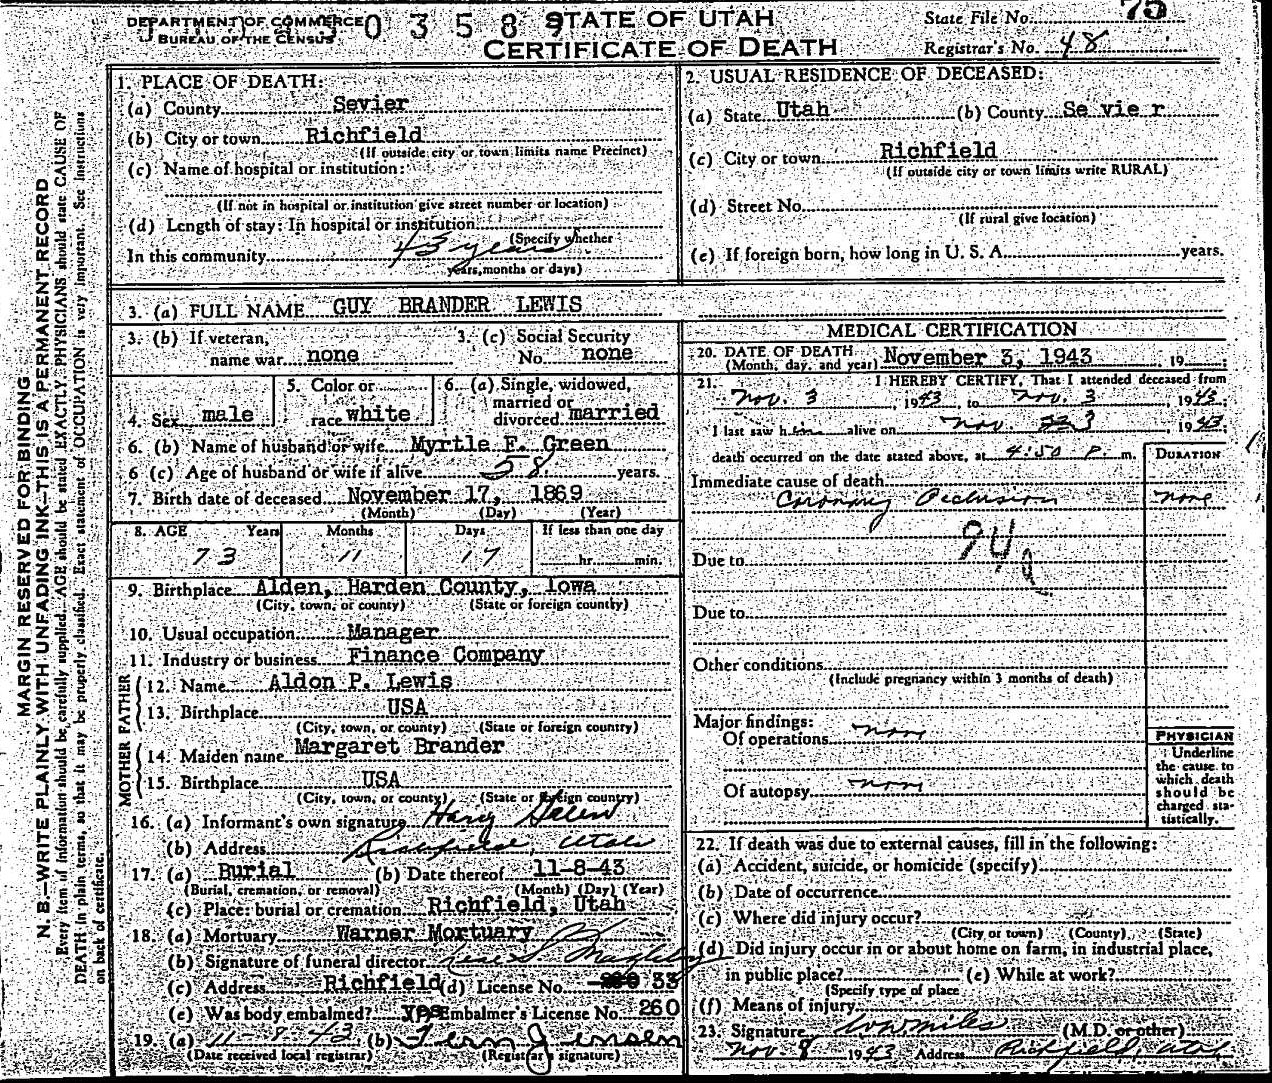 DEPARTMENT OF COMMERCE
BUREAU OF THE CENSUS
0 3 5 8 9
STATE OF UTAH
CERTIFICATE OF DEATH
State File No. 75
Registrar's No. 48
MARGIN RESERVED FOR BINDING
N. B.—WRITE PLAINLY WITH UNFADING INK—THIS IS A PERMANENT RECORD
Every item of information should be carefully supplied. AGE should be stated EXACTLY. PHYSICIANS should state CAUSE OF
DEATH in plain terms, so that it may be properly classified. Exact statement of OCCUPATION is very important. See Instructions
on back of certificate.
1. PLACE OF DEATH:
(a) County Sevier
(b) City or town Richfield
(If outside city or town limits name Precinct)
(c) Name of hospital or institution:
(If not in hospital or institution give street number or location)
(d) Length of stay: In hospital or institution
(Specify whether
In this community 43 years
years, months or days)
2. USUAL RESIDENCE OF DECEASED:
(a) State Utah (b) County Se vie r
(c) City or town Richfield
(If outside city or town limits write RURAL)
(d) Street No.
(If rural give location)
(e) If foreign born, how long in U. S. A. years.
3. (a) FULL NAME GUY BRANDER LEWIS
3. (b) If veteran,
name war none
3. (c) Social Security
No. none
4. Sex male
5. Color or
race white
6. (a) Single, widowed,
married or
divorced married
6. (b) Name of husband or wife Myrtle F. Green
6 (c) Age of husband or wife if alive 58 years.
7. Birth date of deceased November 17, 1869
(Month) (Day) (Year)
8. AGE Years Months Days If less than one day
73 11 17 hr. min.
9. Birthplace Alden, Harden County, Iowa
(City, town, or county) (State or foreign country)
10. Usual occupation Manager
11. Industry or business Finance Company
FATHER
12. Name Aldon P. Lewis
13. Birthplace USA
(City, town, or county) (State or foreign country)
MOTHER
14. Maiden name Margaret Brander
15. Birthplace USA
(City, town, or county) (State or foreign country)
16. (a) Informant's own signature Harry
(b) Address Richfield, Utah
17. (a) Burial (b) Date thereof 11-8-43
(Burial, cremation, or removal) (Month) (Day) (Year)
(c) Place: burial or cremation Richfield, Utah
18. (a) Mortuary Warner Mortuary
(b) Signature of funeral director
(c) Address Richfield (d) License No. 33
(e) Was body embalmed? yes Embalmer's License No. 260
19. (a) 11-8-43 (b) Fern Jensen
(Date received local registrar) (Registrar's signature)
MEDICAL CERTIFICATION
20. DATE OF DEATH
(Month, day, and year) November 3, 1943, 19
21. I HEREBY CERTIFY, That I attended deceased from
Nov. 3, 1943, to Nov. 3, 1943,
I last saw him alive on Nov. 3, 1943,
death occurred on the date stated above, at 4:50 P. m.
DURATION
Immediate cause of death
Coronary Occlusion none
94a
Due to
Due to
Other conditions
(Include pregnancy within 3 months of death)
Major findings:
Of operations none
Of autopsy none
PHYSICIAN
Underline
the cause to
which death
should be
charged sta-
tistically.
22. If death was due to external causes, fill in the following:
(a) Accident, suicide, or homicide (specify)
(b) Date of occurrence
(c) Where did injury occur?
(City or town) (County) (State)
(d) Did injury occur in or about home on farm, in industrial place,
in public place? (e) While at work?
(Specify type of place
(f) Means of injury
23. Signature (M.D. or other)
Nov. 8 1943 Address Richfield, Utah